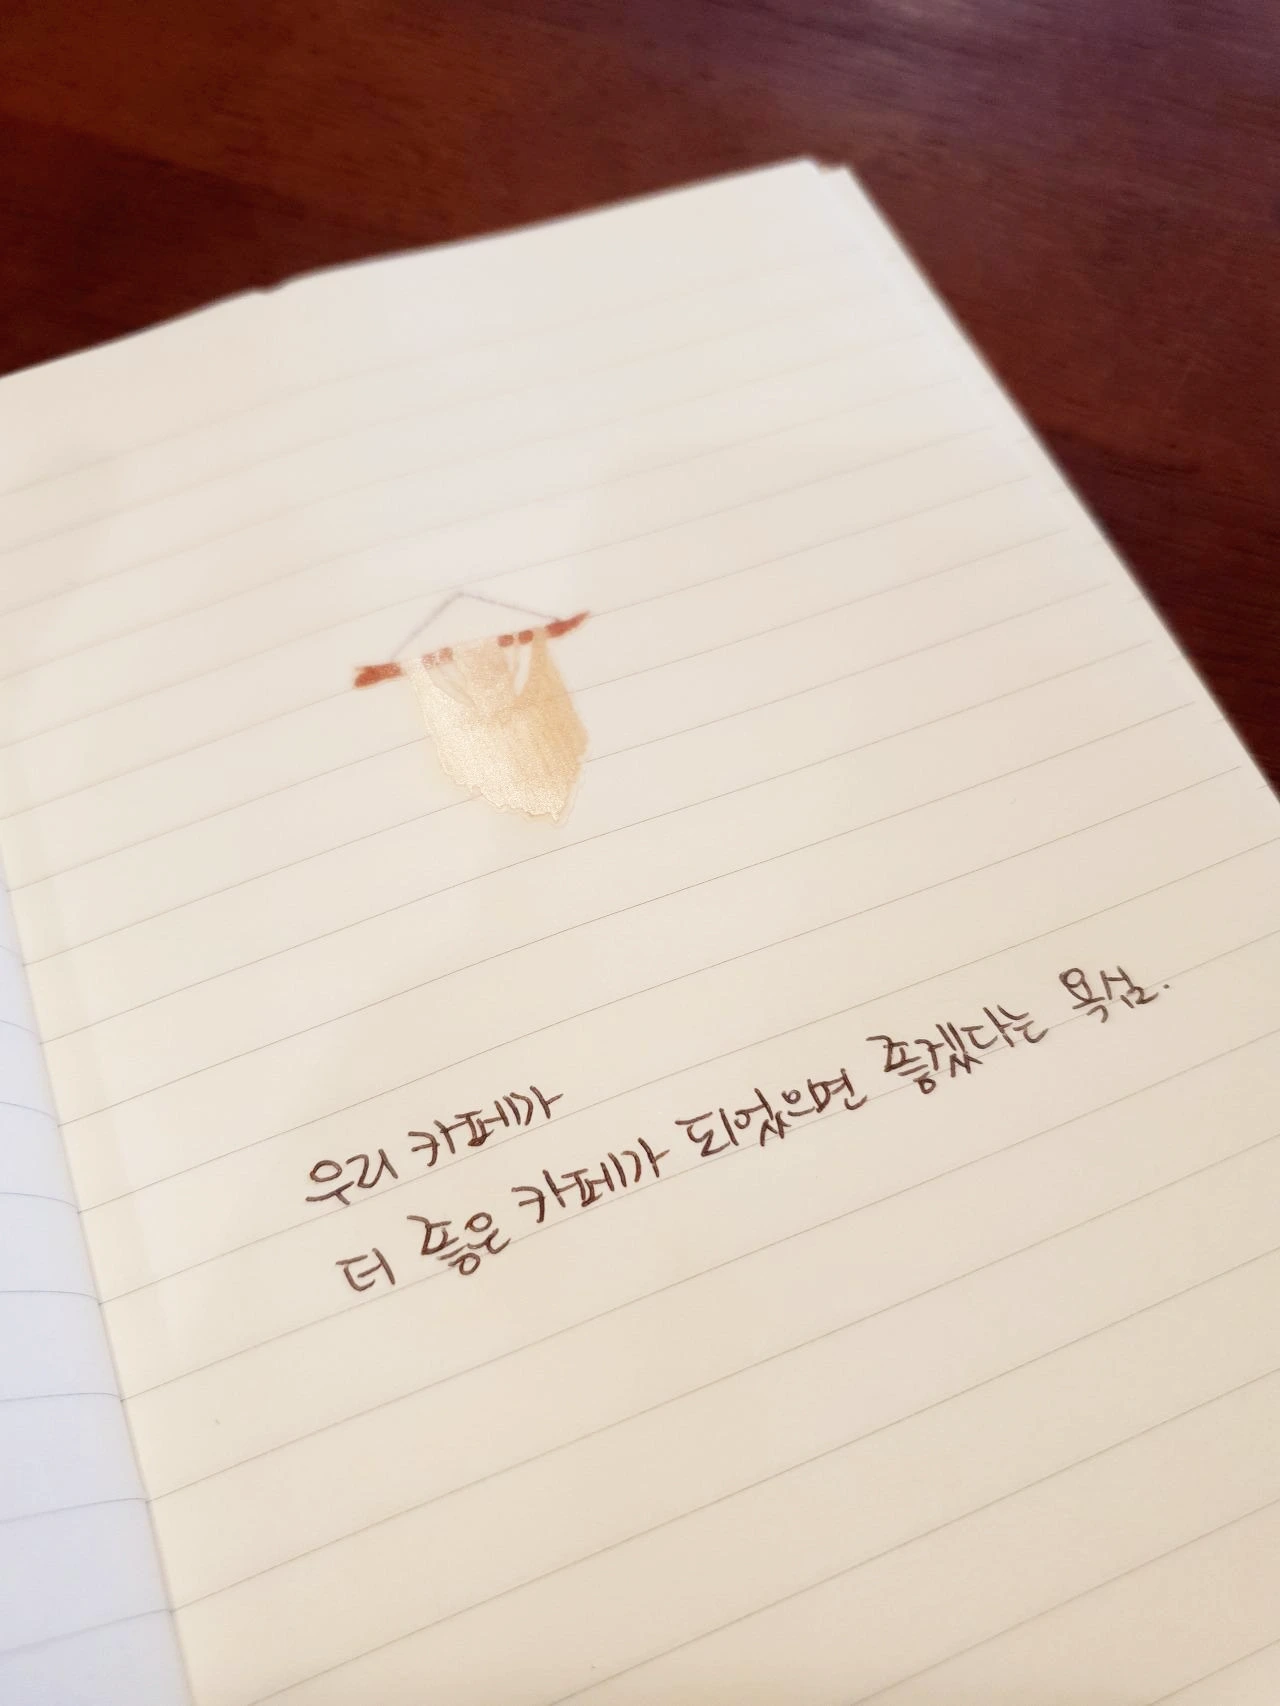 우리 카페가
더 좋은 카페가 되었으면 좋겠다는 욕심.